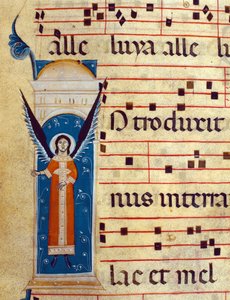 alle luya alle lu
Ntroduxit
nus interra
lac et mel